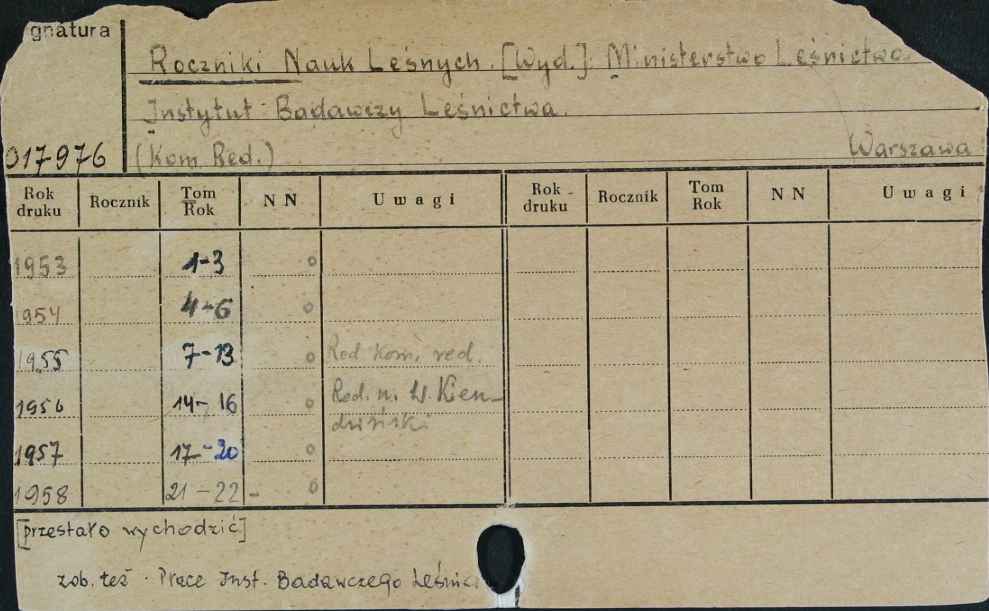 gnatura
Roczniki Nauk Leśnych. [Wyd.]: Ministerstwo Leśnictwa.
Instytut Badawczy Leśnictwa.
017976 (Kom. Red.) Warszawa
Rok druku Rocznik Tom Rok NN Uwagi Rok druku Rocznik Tom Rok NN Uwagi
1953 1-3 o
1954 4-6 o
1955 7-13 o Red. Kom. red.
1956 14-16 o Red. n. W. Kien-
dziński
1957 17-20 o
1958 21-22 - o
[przestało wychodzić]
zob. też. Prace Inst. Badawczego Leśnic